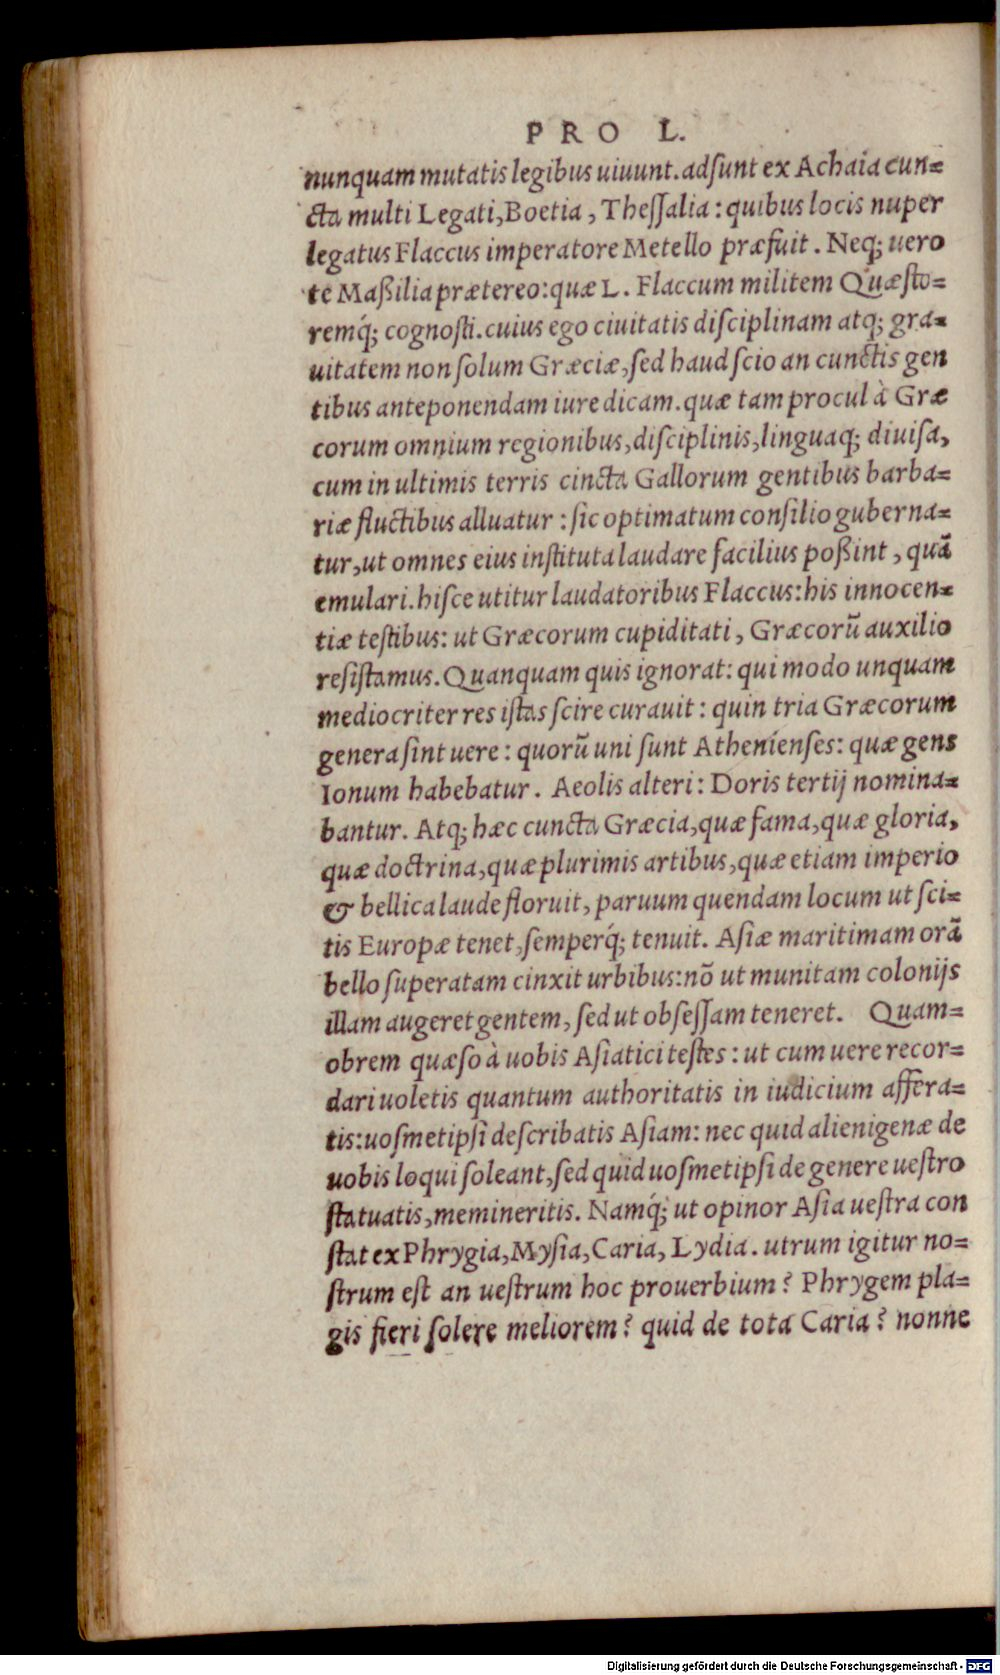 PRO L.
nunquam mutatis legibus uiuunt. adſunt ex Achaia cun=
cta multi Legati, Boetia, Theſſalia: quibus locis nuper
legatus Flaccus imperatore Metello præfuit. Neq; uero
te Maßilia prætereo: quæ L. Flaccum militem Quæſto=
remq́; cognoſti. cuius ego ciuitatis diſciplinam atq; gra=
uitatem non ſolum Græciæ, ſed haud ſcio an cunctis gen
tibus anteponendam iure dicam. quæ tam procul à Græ
corum omnium regionibus, diſciplinis, linguaq; diuiſa,
cum in ultimis terris cincta Gallorum gentibus barba=
riæ fluctibus alluatur: ſic optimatum conſilio guberna=
tur, ut omnes eius inſtituta laudare facilius poßint, quã
emulari. hiſce utitur laudatoribus Flaccus: his innocen=
tiæ teſtibus: ut Græcorum cupiditati, Græcorũ auxilio
reſiſtamus. Quanquam quis ignorat: qui modo unquam
mediocriter res iſtas ſcire curauit: quin tria Græcorum
genera ſint uere: quorũ uni ſunt Athenienſes: quæ gens
Ionum habebatur. Aeolis alteri: Doris tertij nomina=
bantur. Atq; hæc cuncta Græcia, quæ fama, quæ gloria,
quæ doctrina, quæ plurimis artibus, quæ etiam imperio
& bellica laude floruit, paruum quendam locum ut ſci=
tis Europæ tenet, ſemperq́; tenuit. Aſiæ maritimam orã
bello ſuperatam cinxit urbibus: nõ ut munitam colonijs
illam augeret gentem, ſed ut obſeſſam teneret. Quam=
obrem quæſo à uobis Aſiatici teſtes: ut cum uere recor=
dari uoletis quantum authoritatis in iudicium affera=
tis: uoſmetipſi deſcribatis Aſiam: nec quid alienigenæ de
uobis loqui ſoleant, ſed quid uoſmetipſi de genere ueſtro
ſtatuatis, memineritis. Namq́; ut opinor Aſia ueſtra con
ſtat ex Phrygia, Myſia, Caria, Lydia. utrum igitur no=
ſtrum eſt an ueſtrum hoc prouerbium? Phrygem pla=
gis fieri ſolere meliorem? quid de tota Caria? nonne
Digitalisierung gefördert durch die Deutsche Forschungsgemeinschaft - DFG